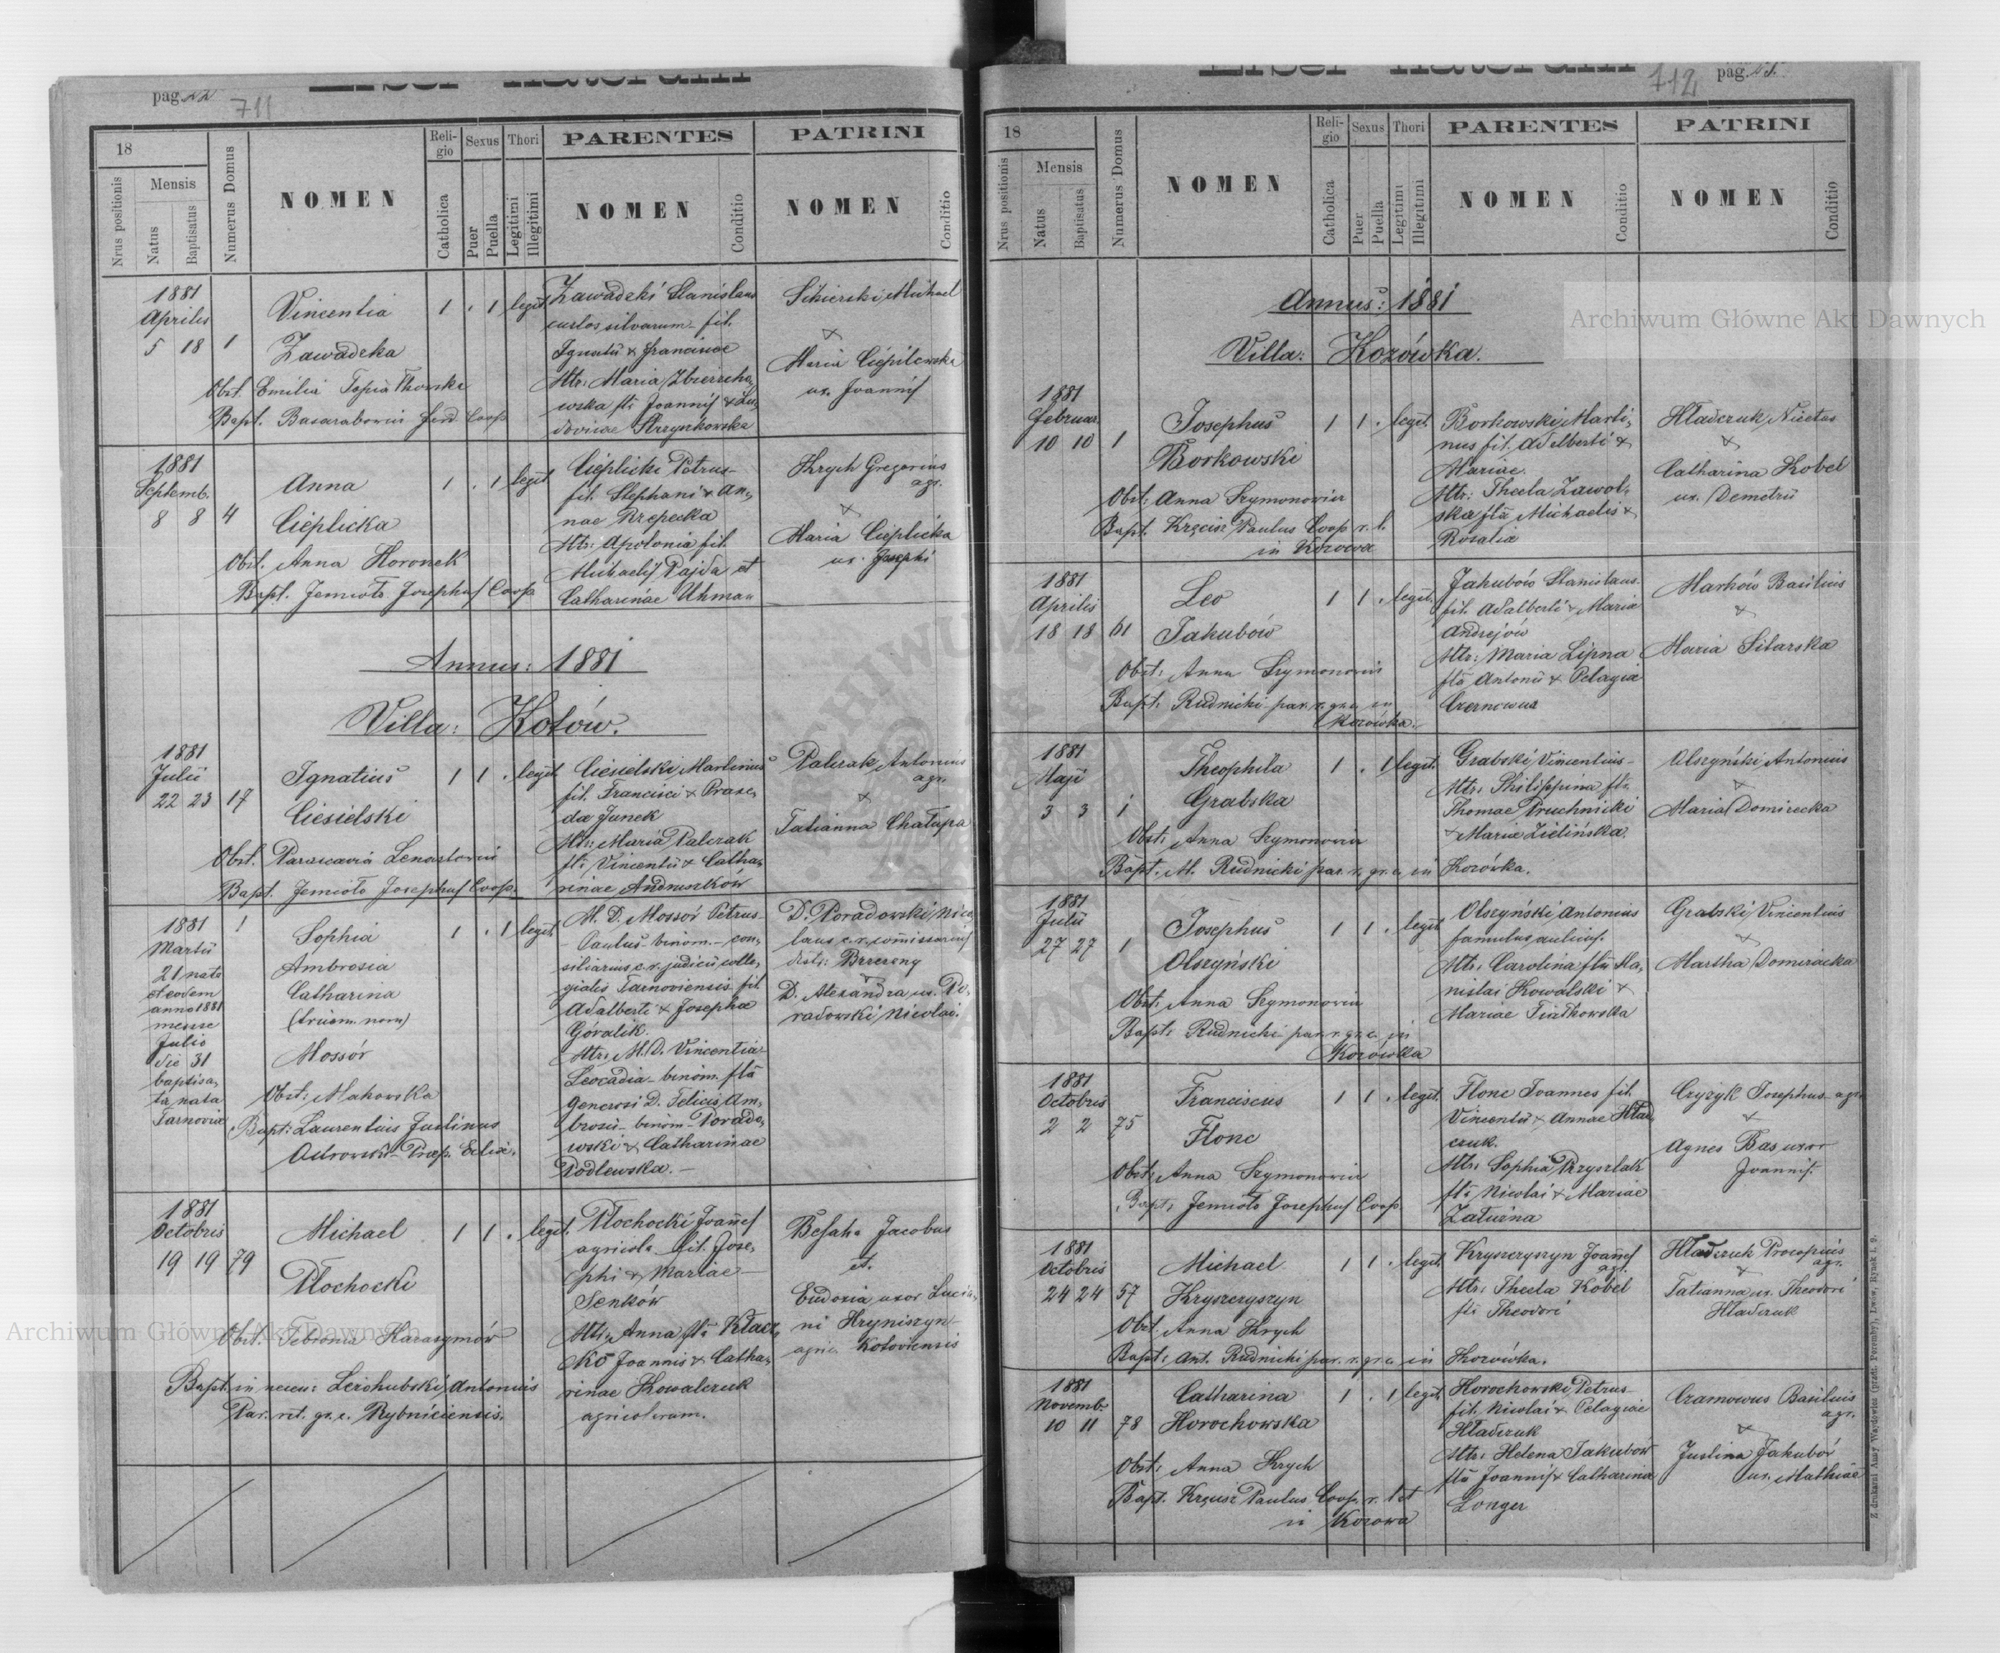 Liber natorum
pag. 22
711
18
Nrus positionis
Mensis
Natus
Baptisatus
Numerus Domus
NOMEN
Religio
Catholica
Sexus
Puer
Puella
Thori
Legitimi
Illegitimi
PARENTES
NOMEN
Conditio
PATRINI
NOMEN
Conditio
1881
Aprilis
5 18 1
Vincentia
Zawadzka
1 . 1 legit.
Obst. Emilia
Bapt. Basarabowicz Ferd Coop
Zawadzki Stanislaus
custos silvarum fil.
Ignatii & Franciscae
Mtr: Maria Zbierzcho
wska fta Joannis & Lu
dovicae Strzyżkowska
Sikierski Michael
&
Maria Ciépilowska
ux. Joannis
1881
Septemb.
8 8 4
Anna
Cieplicka
1 . 1 legit.
Obst. Anna Horonek
Bapt. Jemioło Josephus Coop
Cieplicki Petrus
fil. Stephani & An
nae Rzepecka
Mtr: Apolonia fil.
Michaelis Pajda et
Catharinae Uhman
Krych Gregorius
agr.
&
Maria Cieplicka
ux. Josephi
Annus: 1881
Villa: Kotów.
1881
Julii
22 23 17
Ignatius
Ciesielski
1 1 . legit.
Obst. Parascavia
Bapt. Jemioło Josephus Coop.
Ciesielski Martinus
fil. Francisci & Prase
da Junek
Mtr: Maria Palczak
fta Vincentii & Catha
rinae Andruszków
Palczak Antonius
agr.
&
Tatianna Chałupa
1881 1
Martii
21 nata
et eodem
anno 1881
mense
Julio
die 31
baptisa
ta nata
Tarnoviae
Sophia
Ambrosia
Catharina
(trium. nom)
Mossór
1 . 1 legit.
Obst: Makowska
Bapt: Laurentius Justinus
Ostrowski Praep. Eccliae.
M. D. Mossór Petrus
Paulus binom. con
siliarius c. r. judicii colle
gialis Tarnoviensis fil
Adalberti & Josepha
Góralik.
Mtr: M. D. Vincentia
Leocadia binom. fta
generosi D. Felicis Am
brosii binom Porado
wski & Catharinae
Podlewska.
D. Poradowski Nico
laus c. r. comissarius
distr: Brzezeny
&
D. Alexandra ux. Po
radowski Nicolai.
1881
Octobris
19 19 79
Michael
Płochocki
1 1 . legit.
Obst. Febronia Harasymów
Bapt. in necess: Lerchubski Antonius
Par. rit. gr. c. Rybniciensis.
Płochocki Joannes
agricola fil. Jose
phi & Mariae
Senków
Mtr: Anna fta Kłacz
ko Joannis & Catha
rinae Kowalczuk
agricolarum.
Besaha Jacobus
et.
Eudoxia uxor Lucia
ni Hryniszyn
agric. Kotoviensis
Liber natorum
712
pag.
18
Nrus positionis
Mensis
Natus
Baptisatus
Numerus Domus
NOMEN
Religio
Catholica
Sexus
Puer
Puella
Thori
Legitimi
Illegitimi
PARENTES
NOMEN
Conditio
PATRINI
NOMEN
Conditio
Annus: 1881
Villa: Kozówka.
1881
Februar.
10 10 1
Josephus
Borkowski
1 1 . legit.
Obst: Anna Szymonowicz
Bapt. Kręcisz Paulus Coop r. l.
in Kozowa
Borkowski Marti
nus fil. Adelberti &
Mariae.
Mtr: Thecla Zawol
ska fta Michaelis &
Rozalia
Hładczuk Nicetas
&
Catharina Kobel
ux. Demetrii
1881
Aprilis
18 18 61
Leo
Jakubów
1 1 . legit.
Obst: Anna Szymonowicz
Bapt: Rudnicki par. r. gr. c. in
Kozówka.
Jakubów Stanislaus
fil. Adalberti & Maria
Andrejów
Mtr: Maria Lipna
fta Antonii & Pelagia
Czernowus
Markow Basilius
&
Maria Sitarska
1881
Maji
3 3 1
Theophila
Grabska
1 . 1 legit.
Obst: Anna Szymonowicz
Bapt. M. Rudnicki par. r. gr. c. in Kozówka.
Grabski Vincentius
Mtr: Philippina fta
Thomae Pruchnicki
& Maria Zielińska.
Olszyński Antonius
&
Maria Domirecka
1881
Julii
27 27 1
Josephus
Olszyński
1 1 . legit
Obst: Anna Szymonowicz
Bapt: Rudnicki par. r. gr. c. in
Kozówka
Olszyński Antonius
famulus aulicus.
Mtr: Carolina fta Sta
nislai Kowalski &
Mariae Fiałkowska
Grabski Vincentius
&
Martha Domiracka
1881
Octobris
2 2 75
Franciscus
Flonc
1 1 . legit.
Obst: Anna Szymonowicz
Bapt: Jemioło Josephus Coop.
Flonc Joannes fil.
Vincentii & Annae Hład
czuk.
Mtr: Sophia Przyszlak
fta Nicolai & Mariae
Zaturna
Czyżyk Josephus agr.
&
Agnes Bas uxor
Joannis.
1881
Octobris
24 24 57
Michael
Kryszczyszyn
1 1 . legit.
Obst. Anna Krych
Bapt: Ant. Rudnicki par. r. gr. c. in Kozówka.
Kryszczyszyn Joannes
agr.
Mtr: Thecla Kobel
fta Theodori
Hładczuk Procopius
agr.
&
Tatianna ux. Theodori
Hładczuk
1881
Novembr.
10 11 78
Catharina
Horochowska
1 . 1 legit.
Obst: Anna Krych
Bapt. Kręcisz Paulus Coop. r. lat
in Kozowa
Horochowski Petrus
fil. Nicolai & Pelagiae
Hładczuk
Mtr: Helena Jakubów
fta Joannis & Catharina
Longer
Czarnowus Basilius
agr.
&
Justina Jakubów
ux. Mathiae
Z drukarni Anny Wajdowicz (przedt. Poremby), Lwów, Rynek l. 9.
Archiwum Główne Akt Dawnych
Archiwum Główne Akt Dawnych